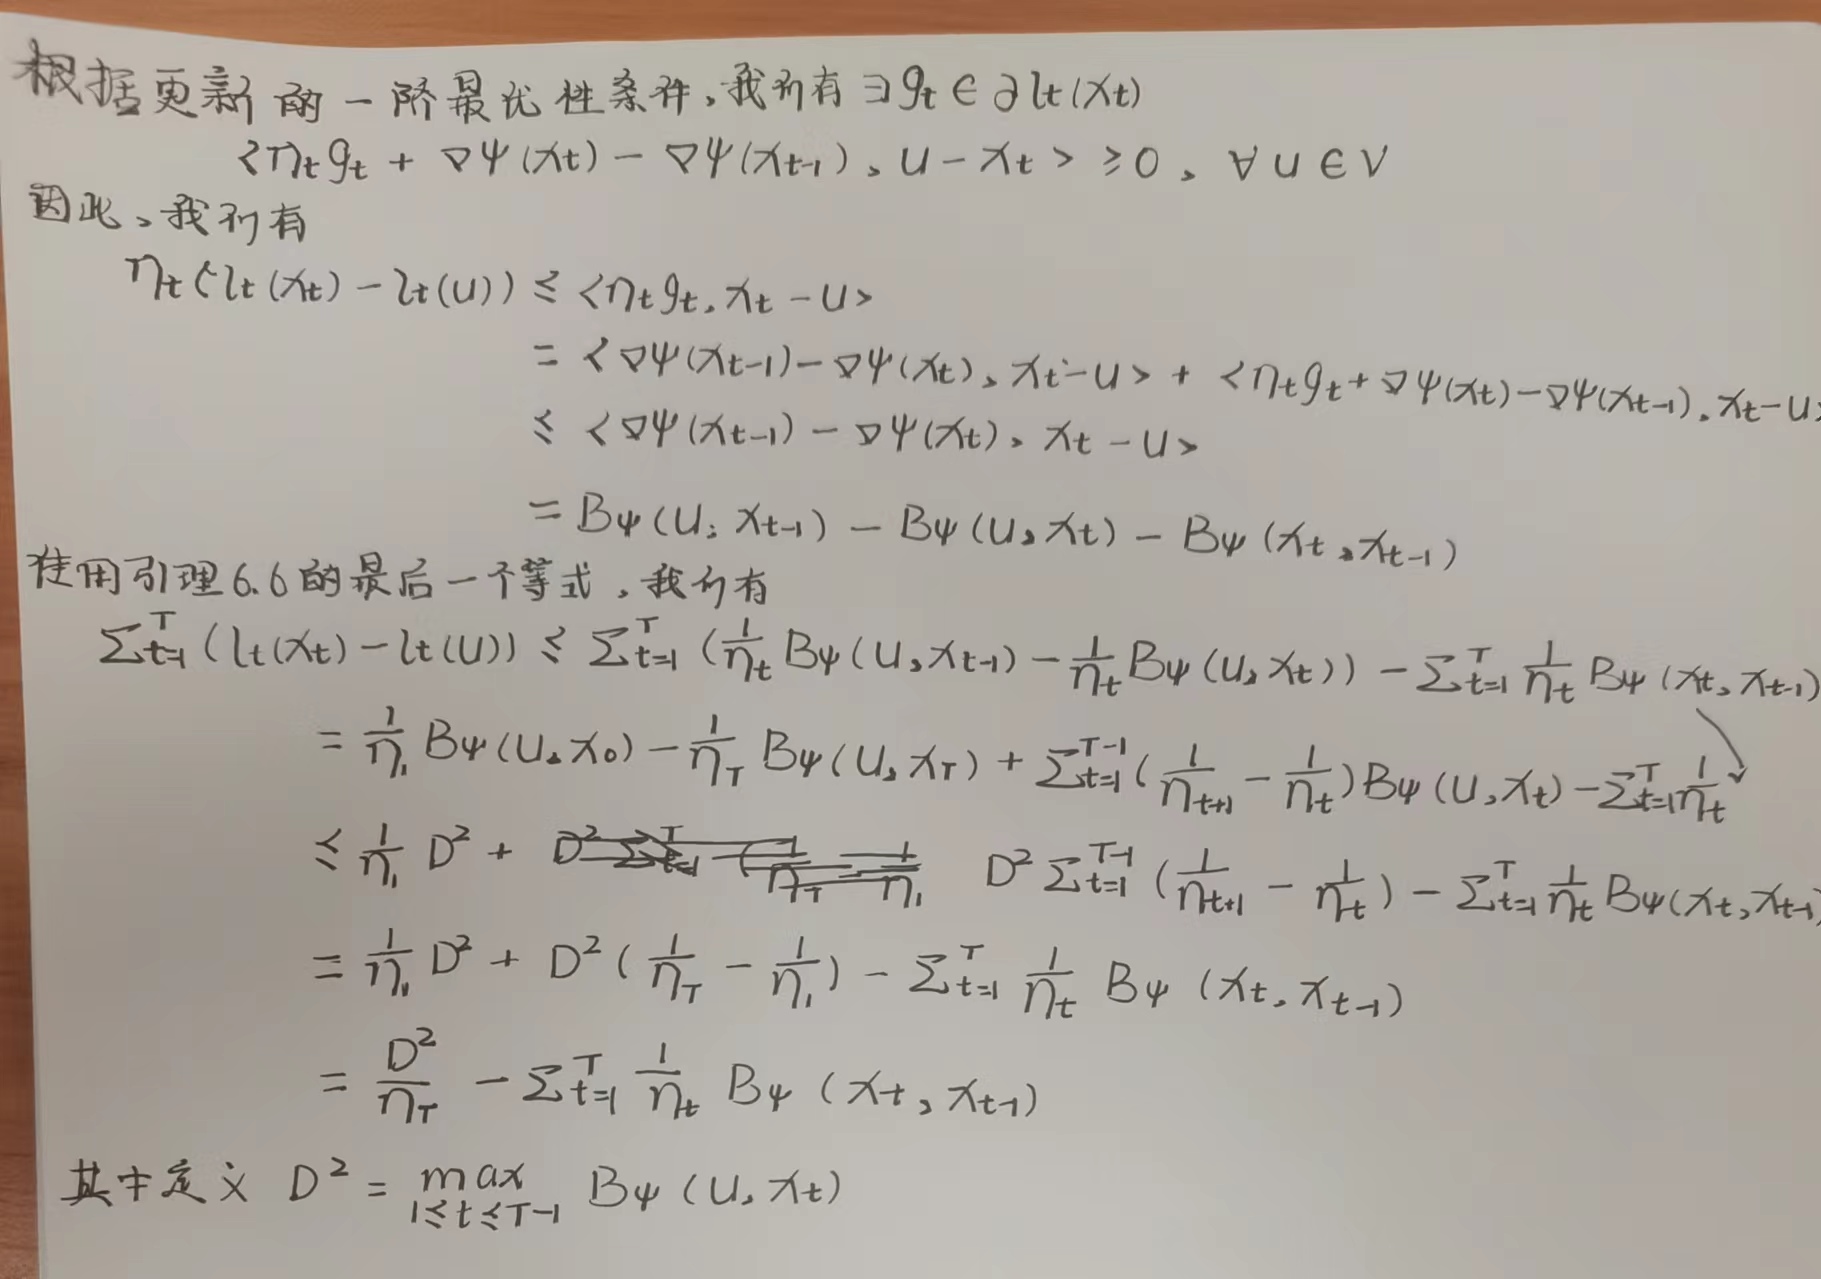 根据更新的一阶最优性条件,我们有 ∃ g_t ∈ ∂l_t(x_t)
<η_t g_t + ∇ψ(x_t) - ∇ψ(x_{t-1}), u - x_t> ≥ 0, ∀ u ∈ V
因此,我们有
η_t(l_t(x_t) - l_t(u)) ≤ <η_t g_t, x_t - u>
= <∇ψ(x_{t-1}) - ∇ψ(x_t), x_t - u> + <η_t g_t + ∇ψ(x_t) - ∇ψ(x_{t-1}), x_t - u>
≤ <∇ψ(x_{t-1}) - ∇ψ(x_t), x_t - u>
= B_ψ(u; x_{t-1}) - B_ψ(u, x_t) - B_ψ(x_t, x_{t-1})
使用引理6.6的最后一个等式,我们有
∑_{t=1}^T (l_t(x_t) - l_t(u)) ≤ ∑_{t=1}^T (1/η_t B_ψ(u, x_{t-1}) - 1/η_t B_ψ(u, x_t)) - ∑_{t=1}^T 1/η_t B_ψ(x_t, x_{t-1})
= 1/η_1 B_ψ(u, x_0) - 1/η_T B_ψ(u, x_T) + ∑_{t=1}^{T-1} (1/η_{t+1} - 1/η_t) B_ψ(u, x_t) - ∑_{t=1}^T 1/η_t
≤ 1/η_1 D² + D² ∑_{t=1}^{T-1} (1/η_{t+1} - 1/η_t) - ∑_{t=1}^T 1/η_t B_ψ(x_t, x_{t-1}
= 1/η_1 D² + D² (1/η_T - 1/η_1) - ∑_{t=1}^T 1/η_t B_ψ(x_t, x_{t-1})
= D²/η_T - ∑_{t=1}^T 1/η_t B_ψ(x_t, x_{t-1})
其中定义 D² = max_{1≤t≤T-1} B_ψ(u, x_t)